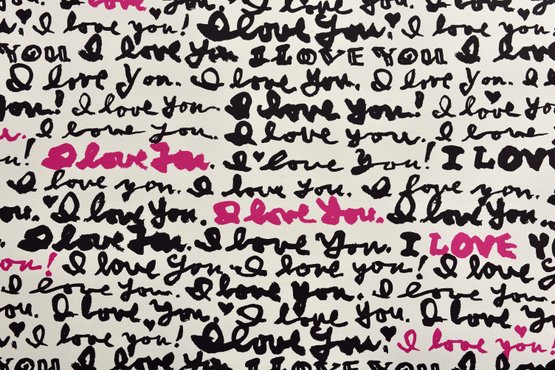 I love you! I love
YOU I love You. I LOVE YOU I love
I love You. I love You. I love you. I
You! I love You. I love You! I love
I love you. I love you. I love
u! I love You. I ♥ love You! I LOV
I love you. I love you. I love you.
ou. I ♥ love You. I love You. I love You.
I love You. I love you. I LOVE Y
ou! I love You. I love you! I love
you. I love You. I love you. I love
I love You. I love You. I love
I love you! I love You! I love you!
YOU I love You. I LOVE YOU